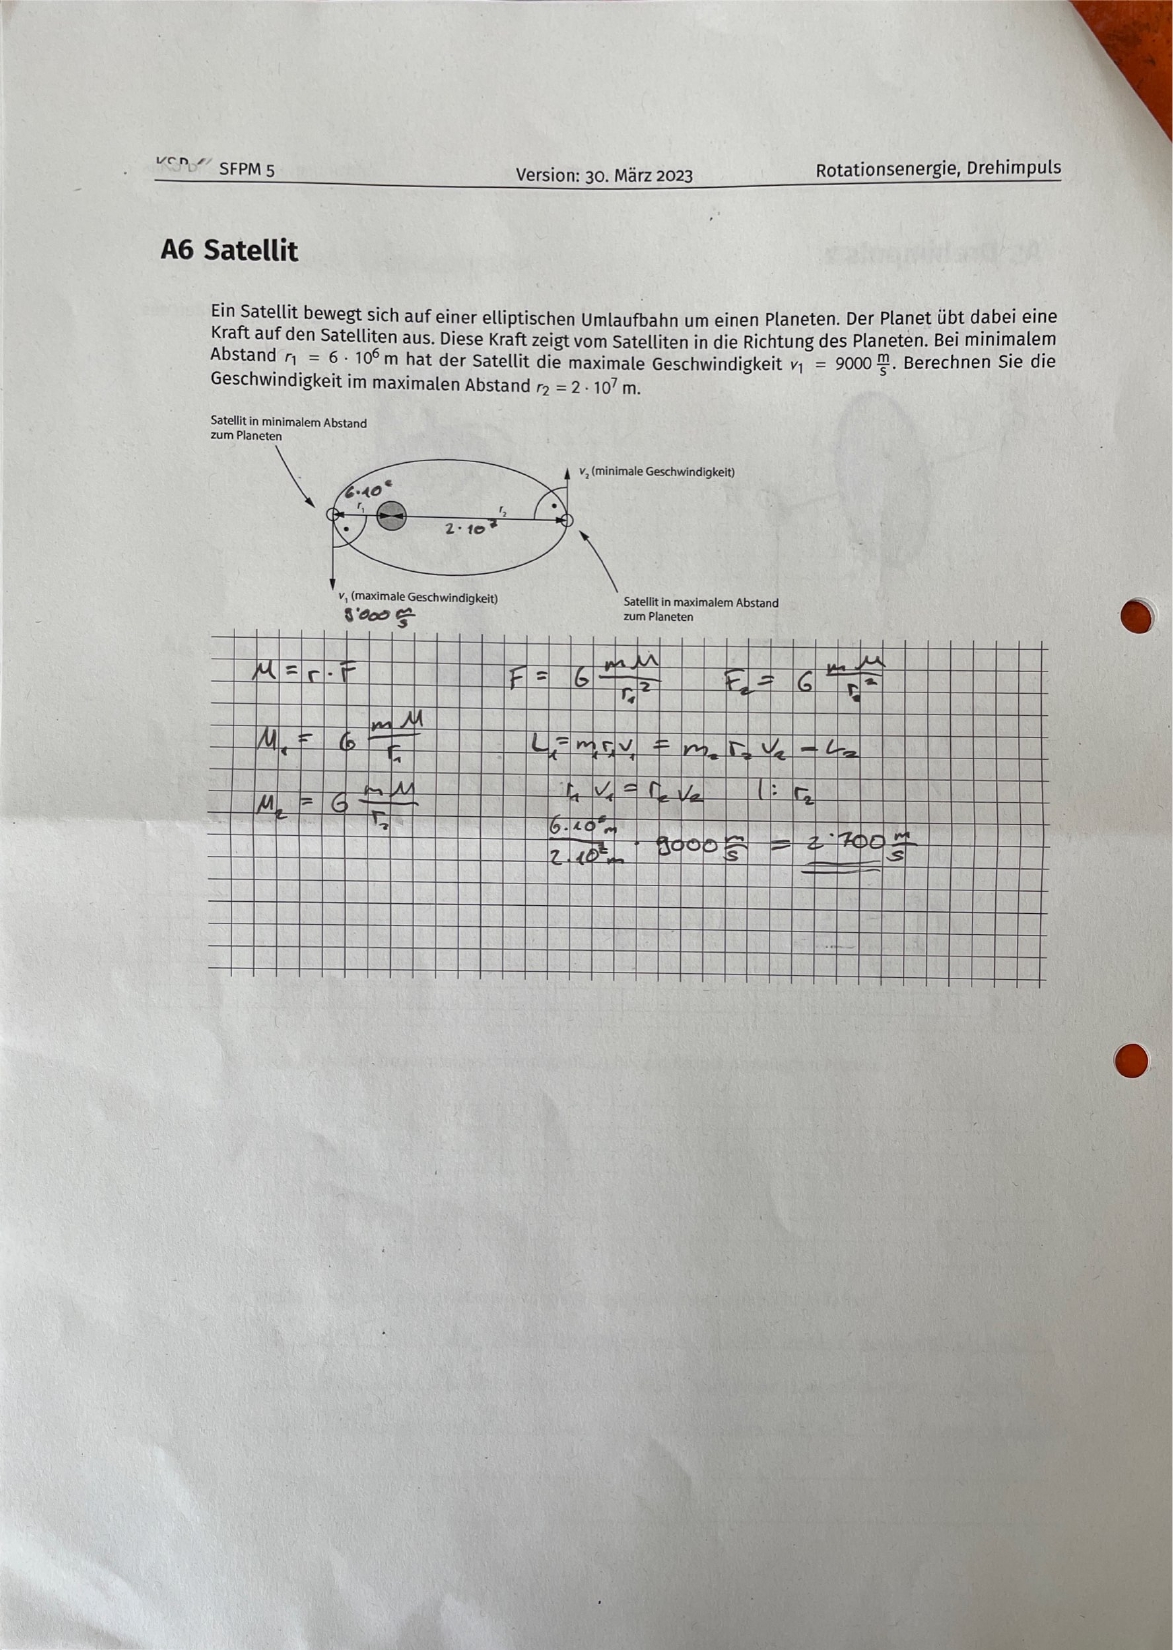 SFPM 5 Version: 30. März 2023 Rotationsenergie, Drehimpuls
A6 Satellit
Ein Satellit bewegt sich auf einer elliptischen Umlaufbahn um einen Planeten. Der Planet übt dabei eine
Kraft auf den Satelliten aus. Diese Kraft zeigt vom Satelliten in die Richtung des Planeten. Bei minimalem
Abstand r₁ = 6 · 10⁶ m hat der Satellit die maximale Geschwindigkeit v₁ = 9000 m/s. Berechnen Sie die
Geschwindigkeit im maximalen Abstand r₂ = 2 · 10⁷ m.
Satellit in minimalem Abstand
zum Planeten
v₂ (minimale Geschwindigkeit)
6·10⁶
r₁ r₂
2·10⁷
v₁ (maximale Geschwindigkeit)
9'000 m/s
Satellit in maximalem Abstand
zum Planeten
M = r · F F = G mM/r₁² F₂ = G mM/r₂²
M₁ = G mM/r₁ L₁ = m₁r₁v₁ = m₂ r₂ v₂ = L₂
M₂ = G mM/r₂ r₁ v₁ = r₂ v₂ |: r₂
6·10⁶m/2·10⁷m · 9000 m/s = 2'700 m/s